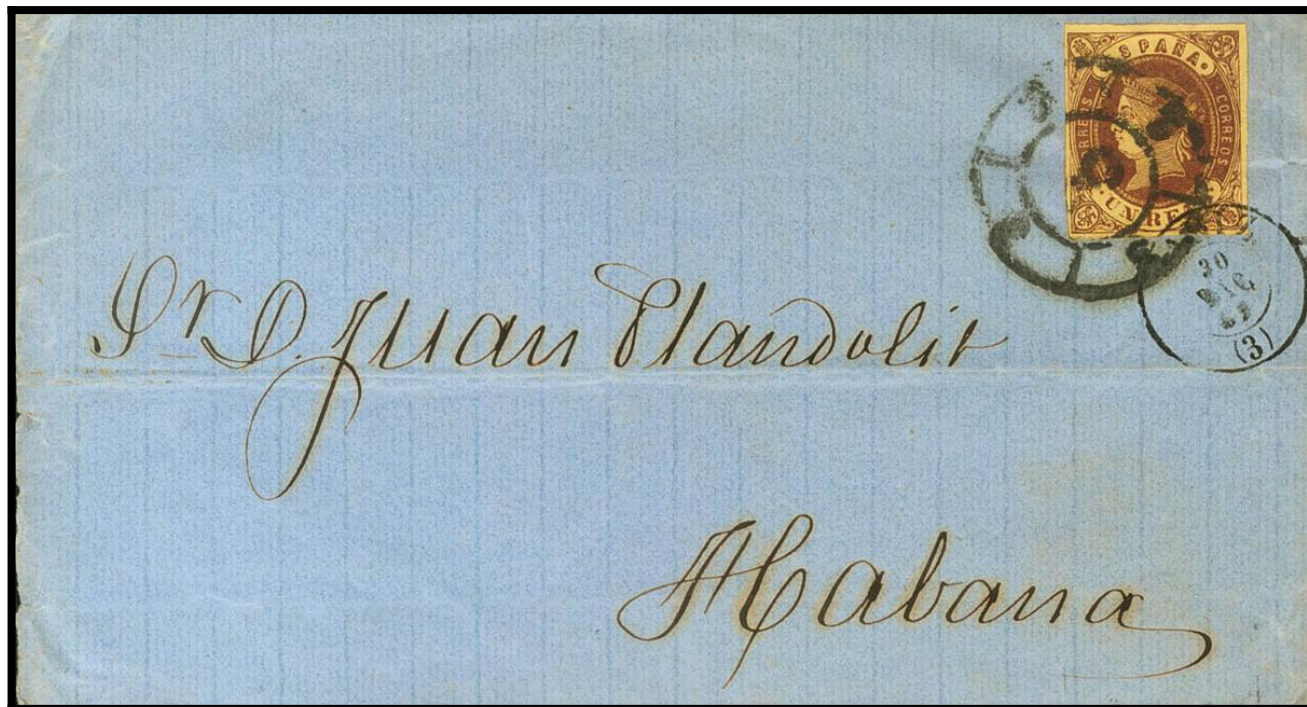 ESPAÑA
CORREOS CORREOS
UN RE
30
DIC
(3)
Sr. D. Juan Plandolit
Habana